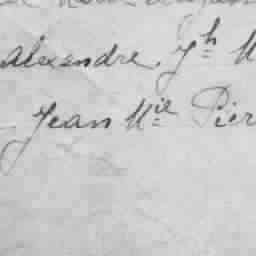 Alexandre Jh M
Jean Mie Pier